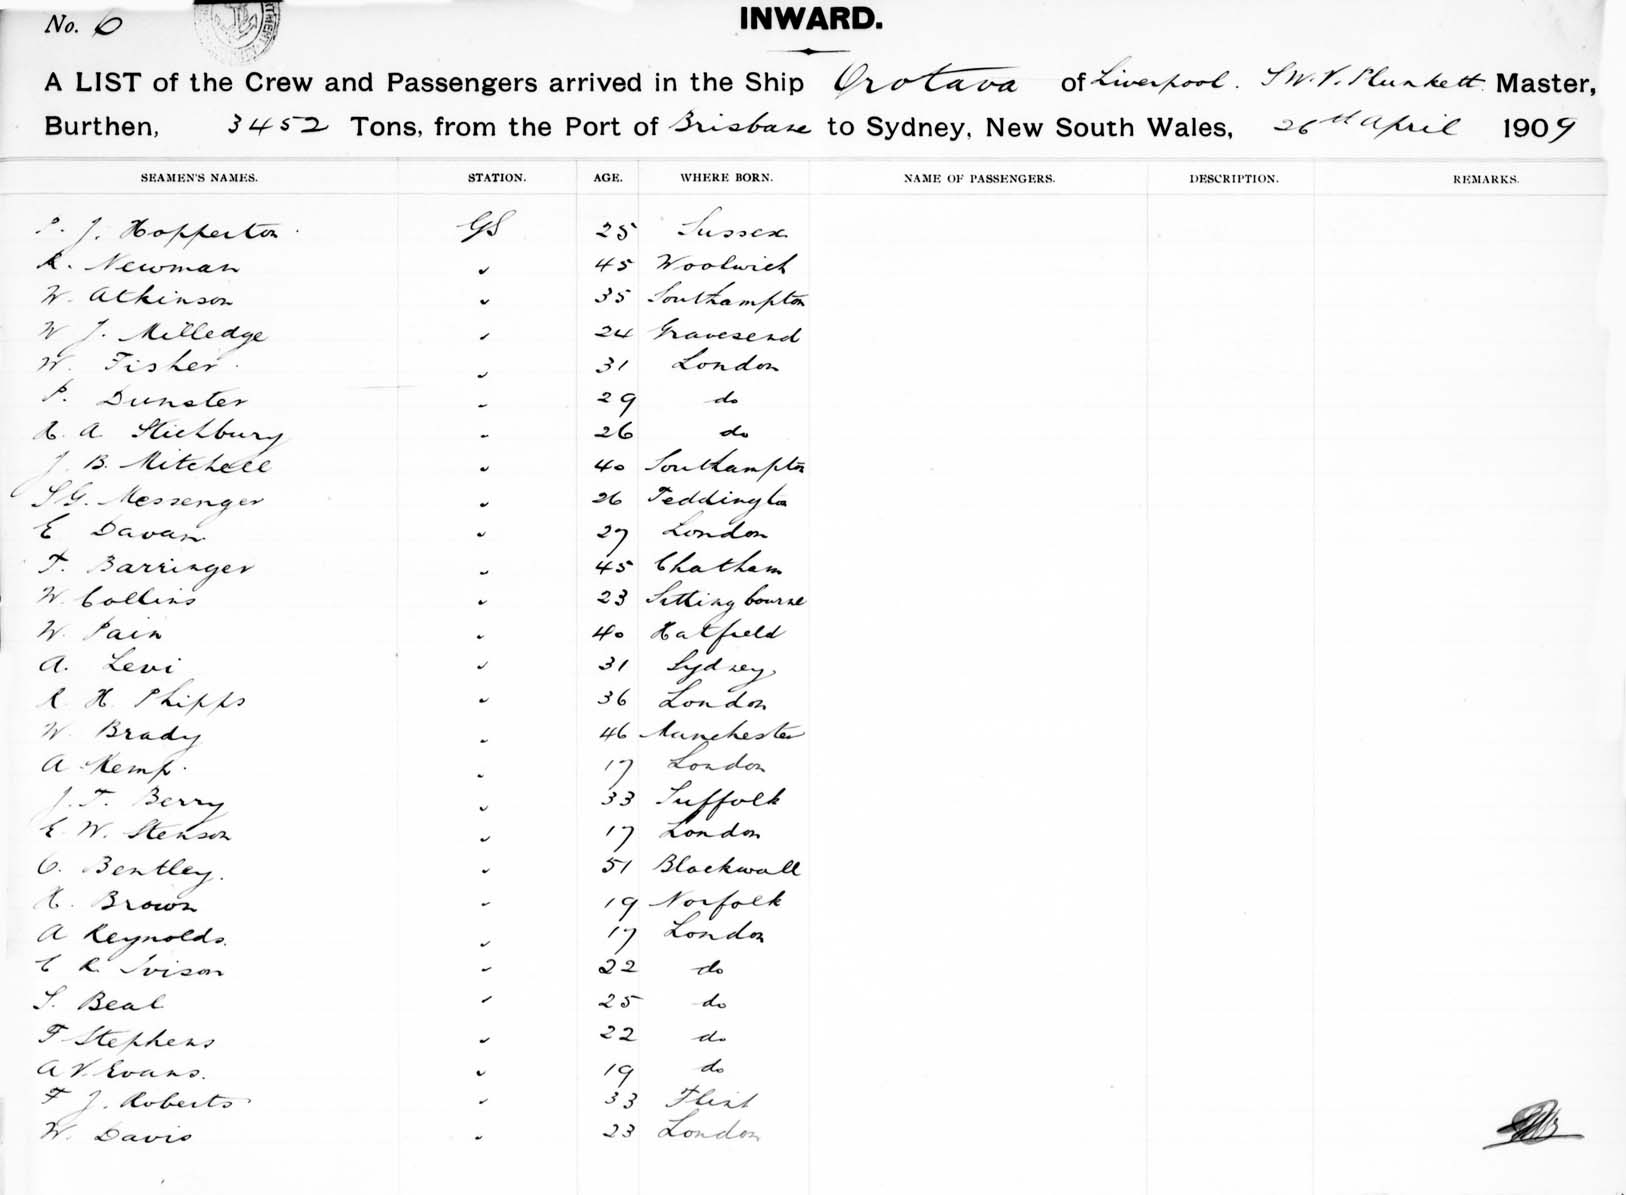 No. 6
INWARD.
A LIST of the Crew and Passengers arrived in the Ship Orotava of Liverpool. Plunkett Master,
Burthen, 3452 Tons, from the Port of Brisbane to Sydney, New South Wales, 26th April 1909
SEAMEN'S NAMES. STATION. AGE. WHERE BORN. NAME OF PASSENGERS. DESCRIPTION. REMARKS.
P. J. Hopperton GS 25 Sussex
R. Newman " 45 Woolwich
W. Atkinson " 35 Southampton
W J. Milledge " 24 Gravesend
W. Fisher " 31 London
P. Dunster " 29 do
H. A Stichbury " 26 do
J. B. Mitchell " 40 Southampton
S G. Messenger " 26 Teddington
E Davan " 27 London
F. Barringer " 45 Chatham
W. Collins " 23 Sittingbourne
W. Pain " 40 Hatfield
A. Levi " 31 Sydney
R. H. Phipps " 36 London
W. Brady " 46 Manchester
A Kemp. " 17 London
J. F. Berry " 33 Suffolk
E. W. Stenson " 17 London
C. Bentley. " 51 Blackwall
H. Brown " 19 Norfolk
A Reynolds. " 17 London
C R Ivison " 22 do
S. Beal " 25 do
F Stephens " 22 do
A V. Evans. " 19 do
F J. Roberts " 33 Flint
W. Davis " 23 London